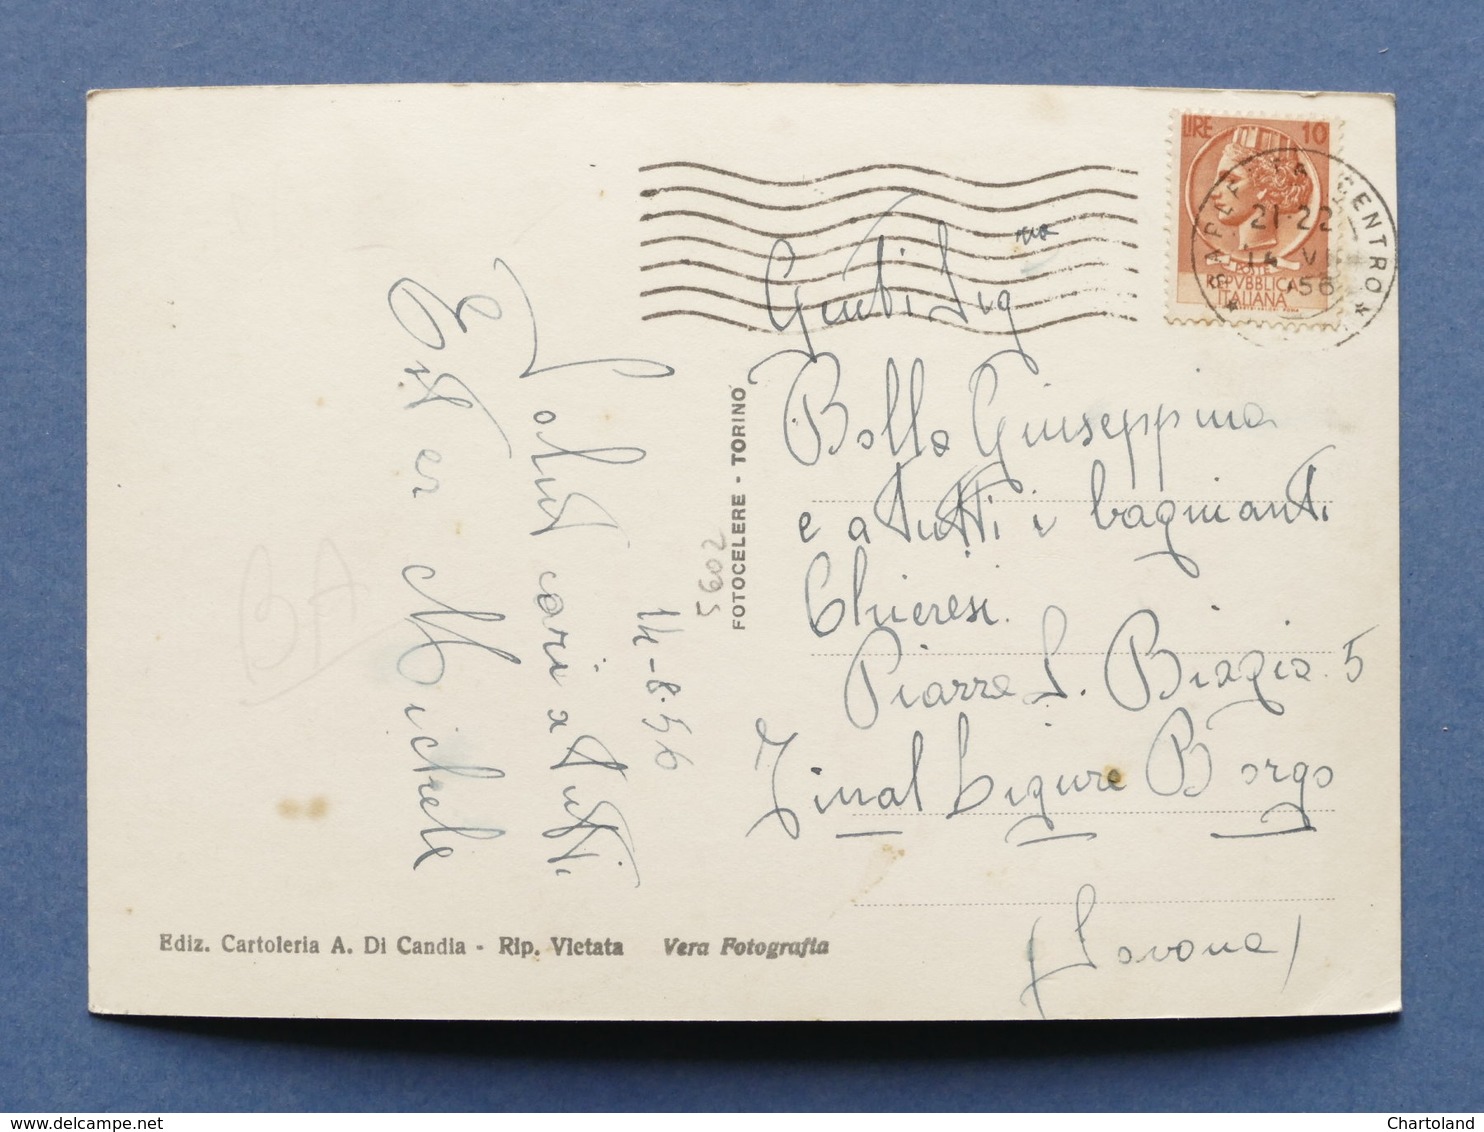 LIRE 10
POSTE
REPVBBLICA
ITALIANA
21-22
56
CENTRO
Gentil Sig na
Bolla Giuseppina
e a tutti i bagnianti
Chieresi.
Piazza S. Biagio. 5
Final Ligure Borgo
(Savona)
14-8-56
Saluti cari a tutti
Ester Michele
BA
5602
FOTOCELERE - TORINO
Ediz. Cartoleria A. Di Candia - Rip. Vietata Vera Fotografia
delcampe.net
Chartoland